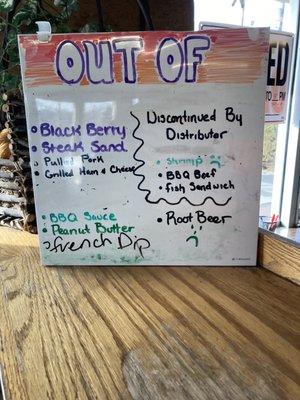 OUT OF
• Black Berry
• Steak Sand
• Pulled Pork
• Grilled Ham & Cheese
• BBQ Sauce
• Peanut Butter
French Dip
Discontinued By
Distributor
• Shrimp
• BBQ Beef
• fish Sandwich
• Root Beer
ED